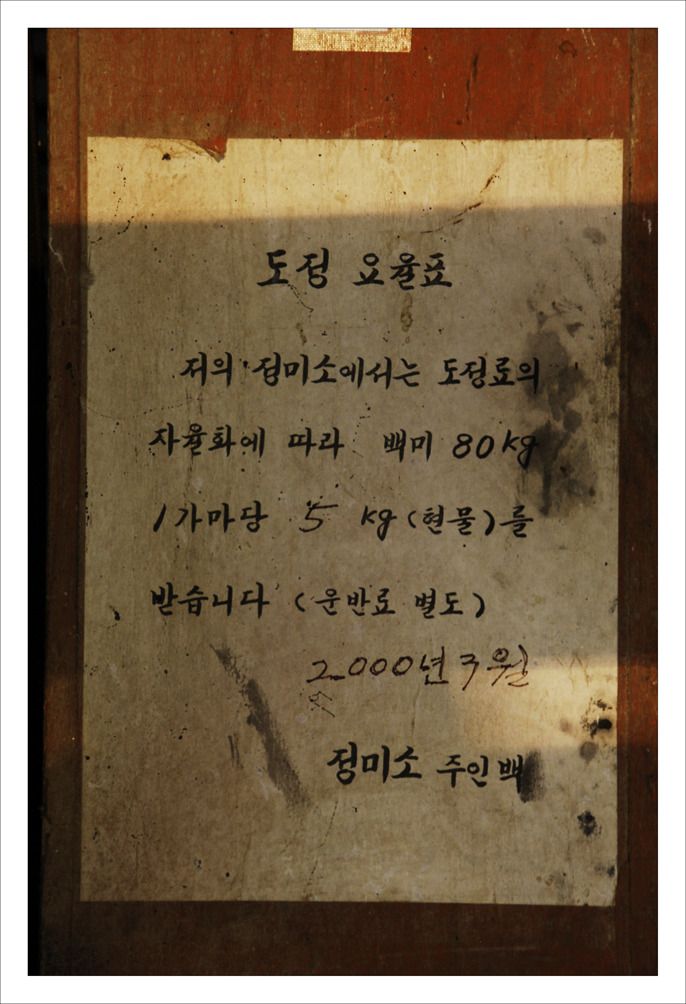 도정 요율표
저의 정미소에서는 도정료의
자율화에 따라 백미 80kg
1가마당 5 kg(현물)를
받습니다 (운반료 별도)
2000년 3월
정미소 주인백